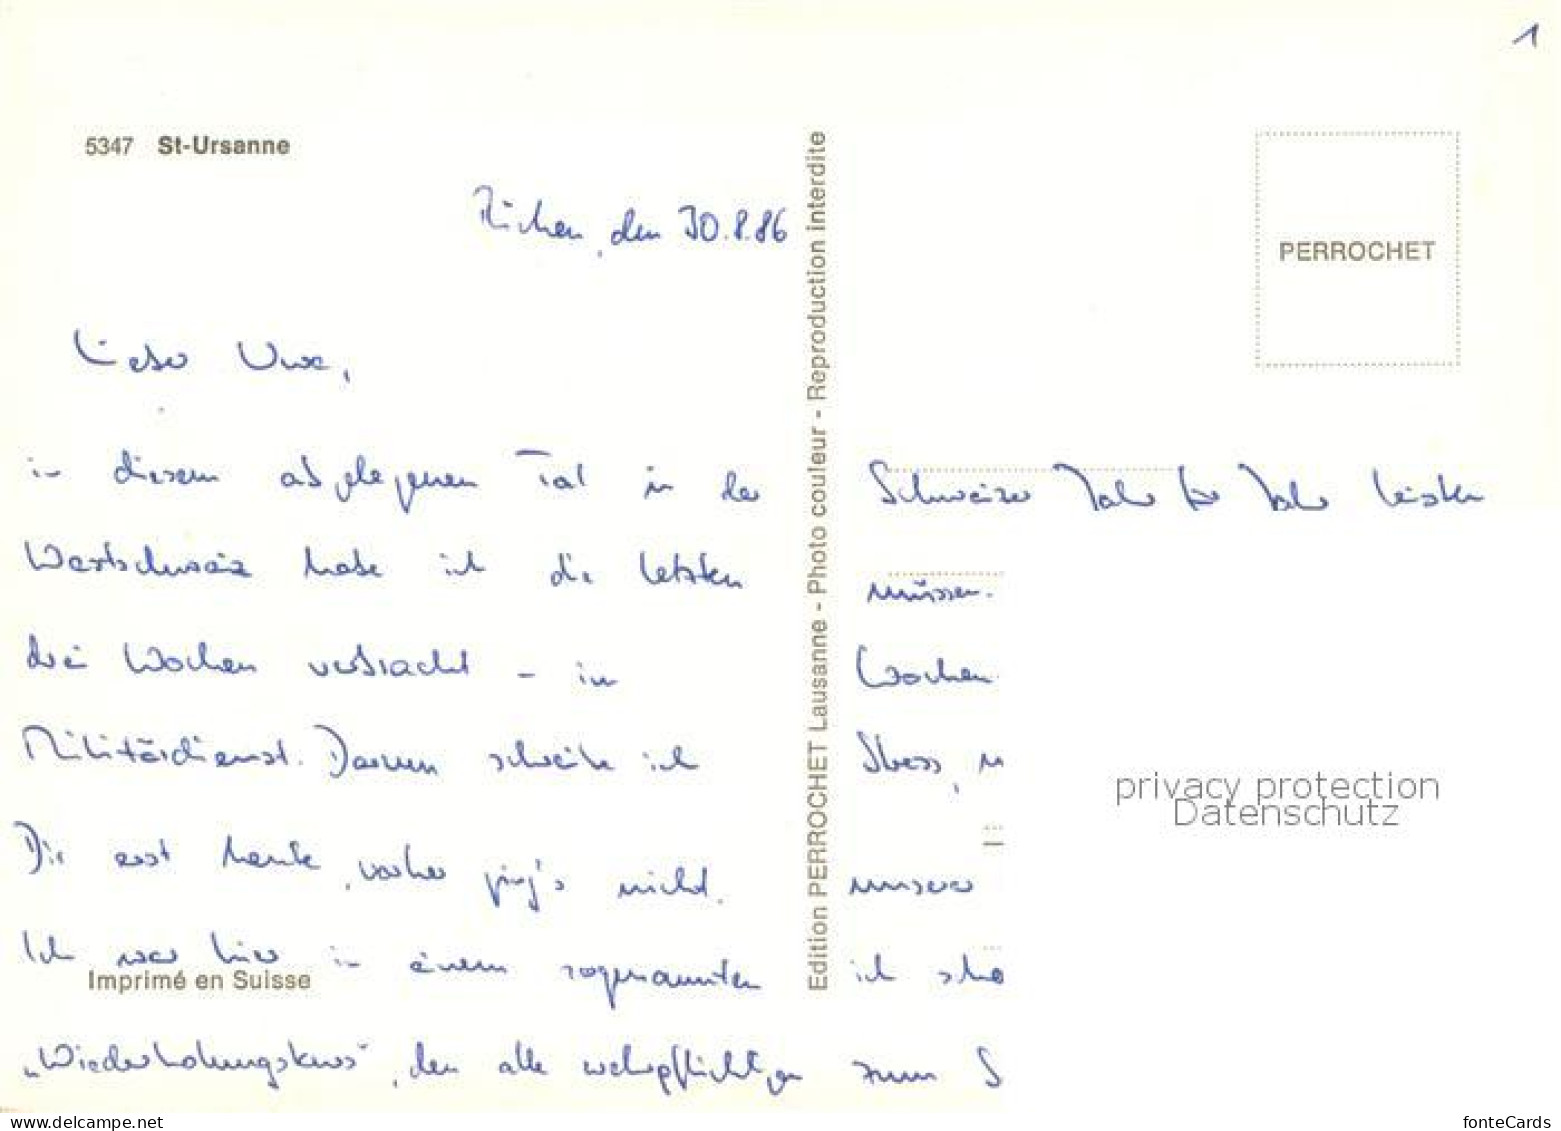 1
5347 St-Ursanne
PERROCHET
den 30.8.86
Lieber Uwe,
in diesem abgelegenen Tal in der
Westschweiz habe ich die letzten
drei Wochen verbracht – im
Militärdienst. Darum schreibe ich
Dir erst heute, vorher ging's nicht.
Ich war hier in einem sogenannten
Imprimé en Suisse
„Wiederholungskurs", den alle wehrpflichtigen
Edition PERROCHET Lausanne - Photo couleur - Reproduction interdite
Schweizer Jahr für Jahr leisten
müssen.
Wochen
Stress,
unserer
ich
zum S
privacy protection
Datenschutz
www.delcampe.net
fonteCards